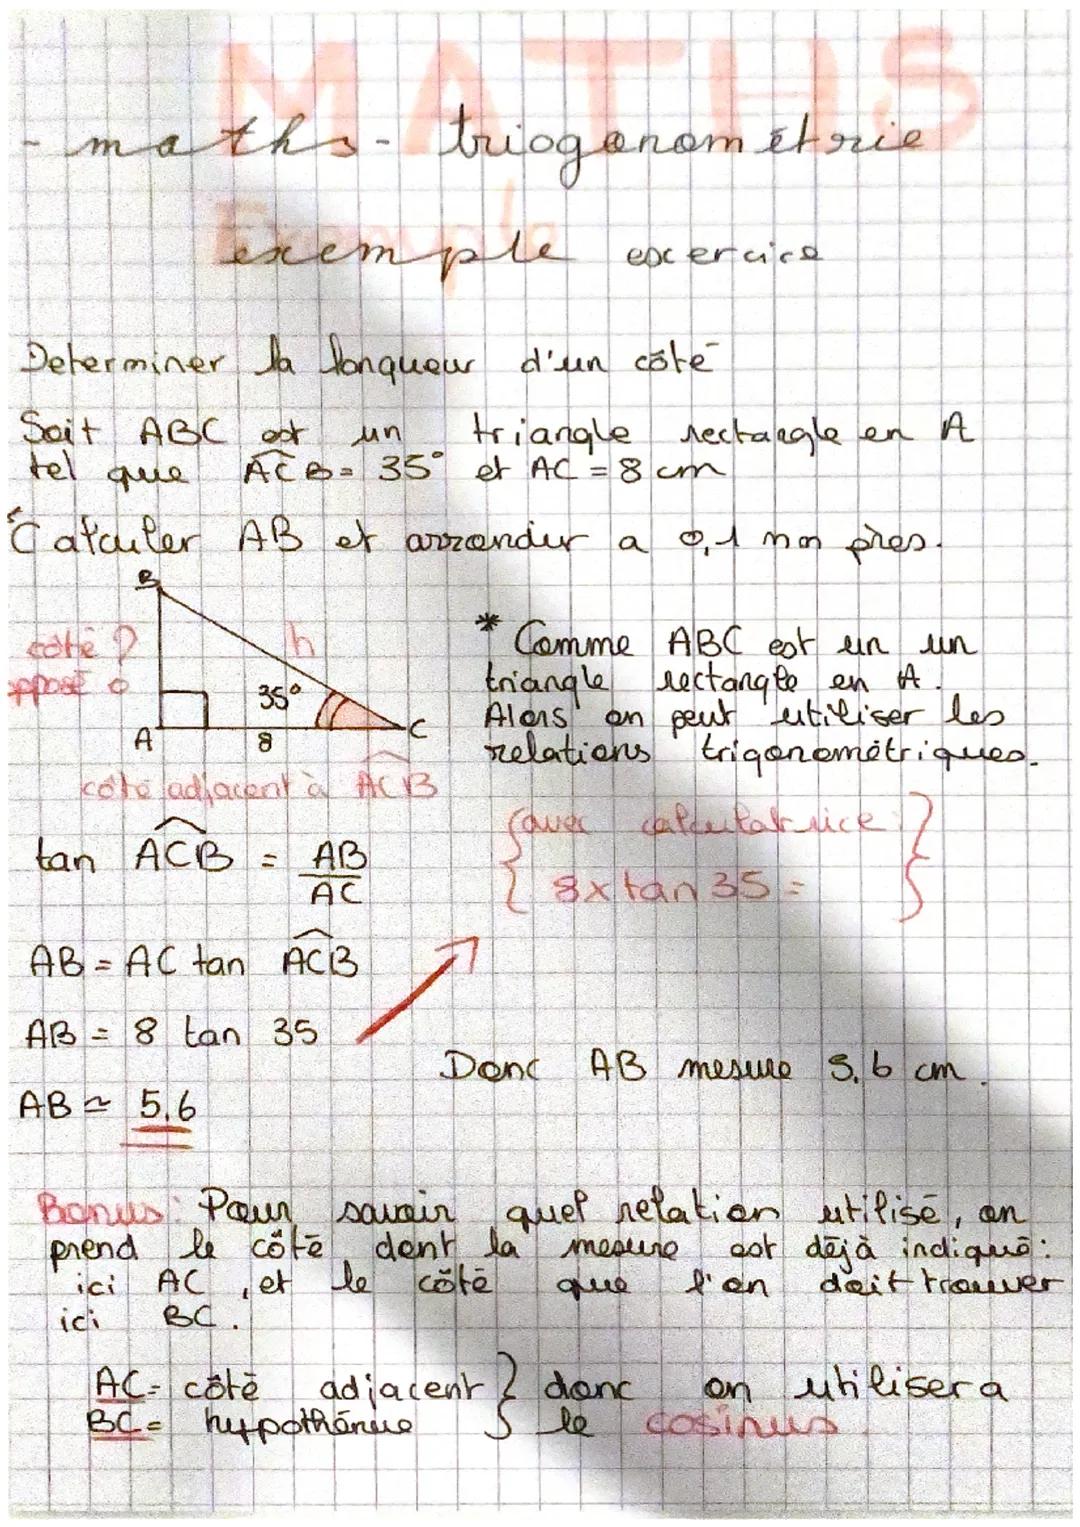 MATHS
- maths - triogonométrie
Exemple
exemple excercice
Determiner la longueur d'un côté
Soit ABC est un triangle rectangle en A
tel que ACB = 35° et AC = 8 cm
Calculer AB et arrondir a 0,1 mm près.
B
côté ?
opposé o
h
35°
A
8
C
côté adjacent à ACB
* Comme ABC est un un
triangle rectangle en A.
Alors on peut utiliser les
relations trigonométriques.
{avec calculatrice:}
{8 x tan 35 =}
tan ACB = AB
AC
AB = AC tan ACB
AB = 8 tan 35
AB ≃ 5,6
Donc AB mesure 5,6 cm.
Bonus: Pour savoir quel relation utilisé, on
prend le côté dont la mesure est déjà indiqué:
ici AC, et le côté que l'on doit trouver
ici BC.
AC = côté adjacent } donc on utilisera
BC = hypothénue } le cosinus